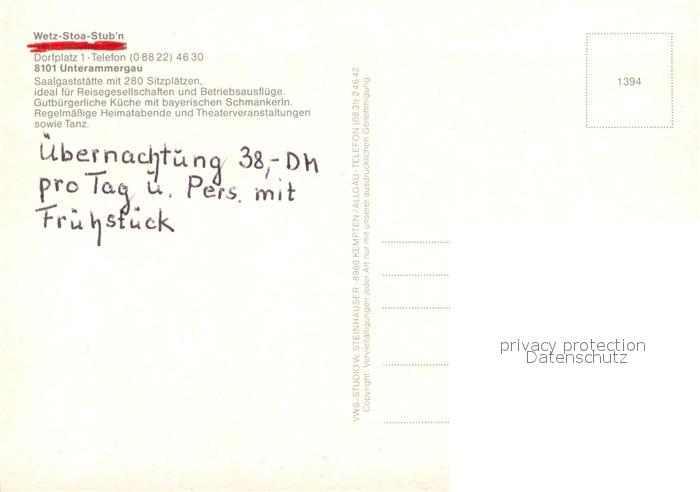 Wetz-Stoa-Stub'n
Dorfplatz 1 · Telefon (0 88 22) 46 30
8101 Unterammergau
Saalgaststätte mit 280 Sitzplätzen,
ideal für Reisegesellschaften und Betriebsausflüge.
Gutbürgerliche Küche mit bayerischen Schmankerln.
Regelmäßige Heimatabende und Theaterveranstaltungen
sowie Tanz.
Übernachtung 38,- DM
pro Tag u. Pers. mit
Frühstück
VWS-STUDIO W. STEINHAUSER · 8960 KEMPTEN / ALLGÄU · TELEFON (08 31) 2 46 42
Copyright: Vervielfältigungen jeder Art nur mit unserer ausdrücklichen Genehmigung.
1394
privacy protection
Datenschutz